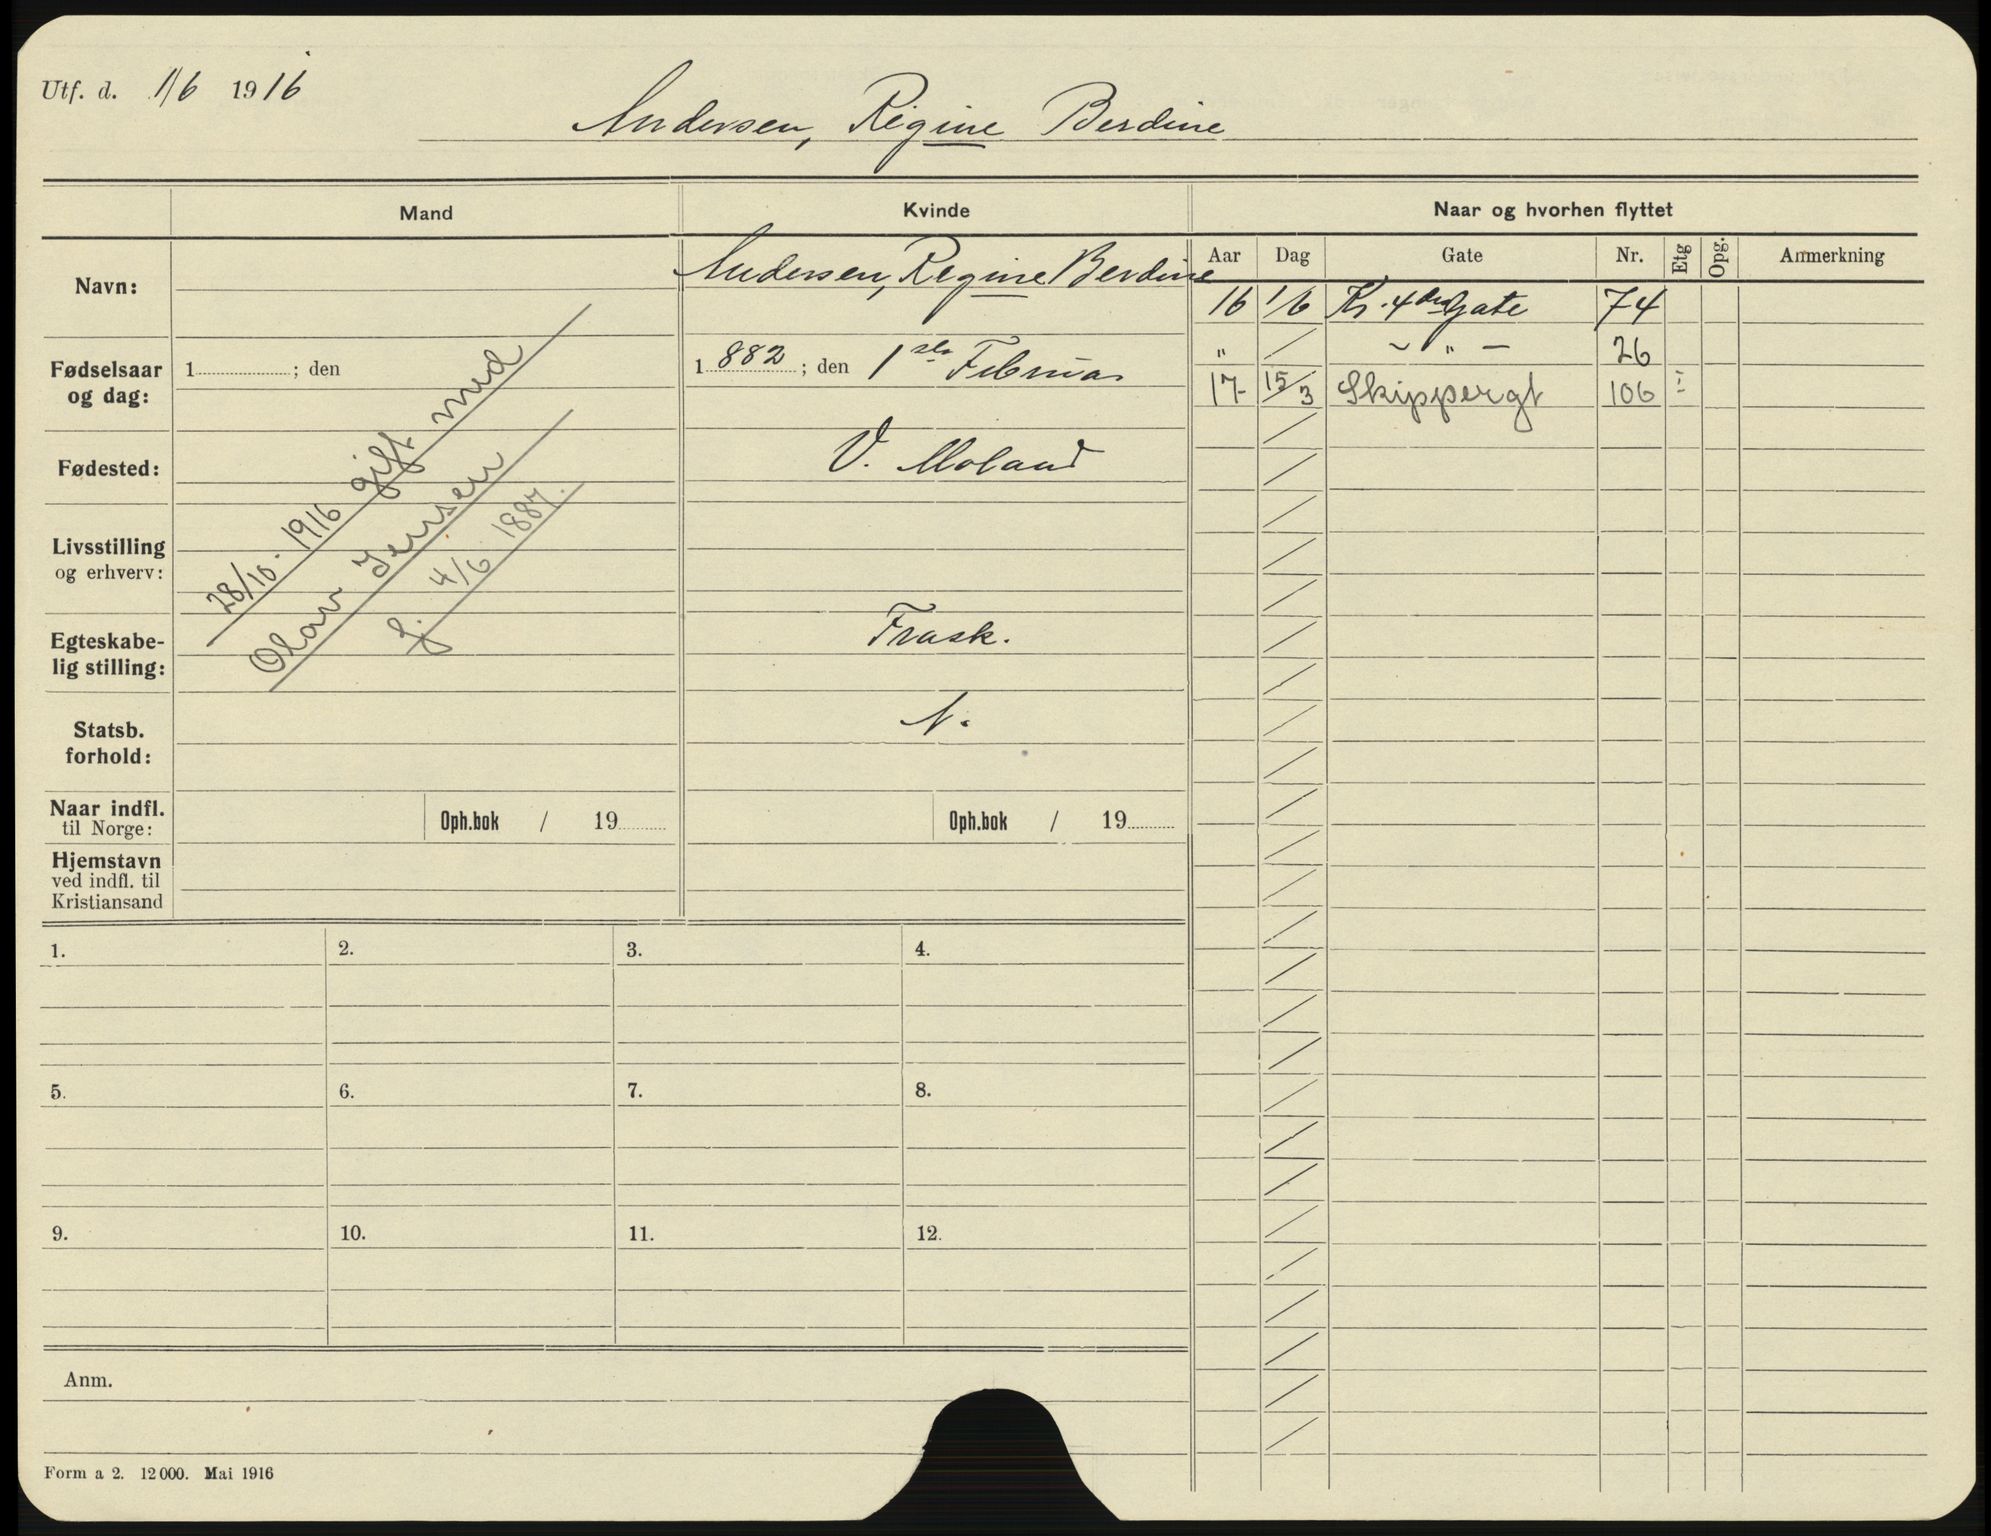 Utf. d. 1/6 1916
Andersen, Regine Berdine
Mand
Kvinde
Naar og hvorhen flyttet
Navn:
Andersen, Regine Berdine
Aar Dag Gate Nr. Etg Opg. Anmerkning
16 1/6 Kr. 4des Gate 74
" / ~ " — 26
17 15/3 Skippergt 106
Fødselsaar
og dag:
1 ; den
1 882 ; den 1ste Februar
Fødested:
V. Moland
Livsstilling
og erhverv:
28/10. 1916 gift med
Olav Jensen
f. 4/6 1887.
Egteskabe-
lig stilling:
Frask.
Statsb.
forhold:
N.
Naar indfl.
til Norge:
Oph.bok / 19
Oph.bok / 19
Hjemstavn
ved indfl. til
Kristiansand
1. 2. 3. 4.
5. 6. 7. 8.
9. 10. 11. 12.
Anm.
Form a 2. 12 000. Mai 1916